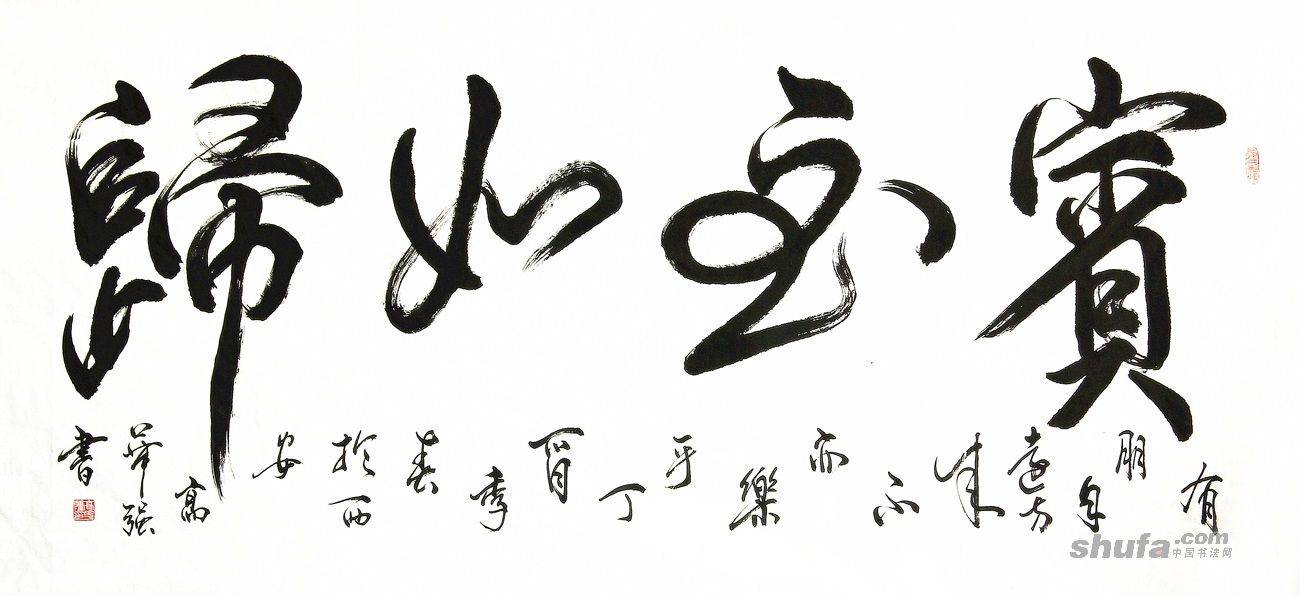 賓至如歸
有朋自遠方來不亦樂乎丁酉季春於西安高華强書
shufa.com
中国书法网